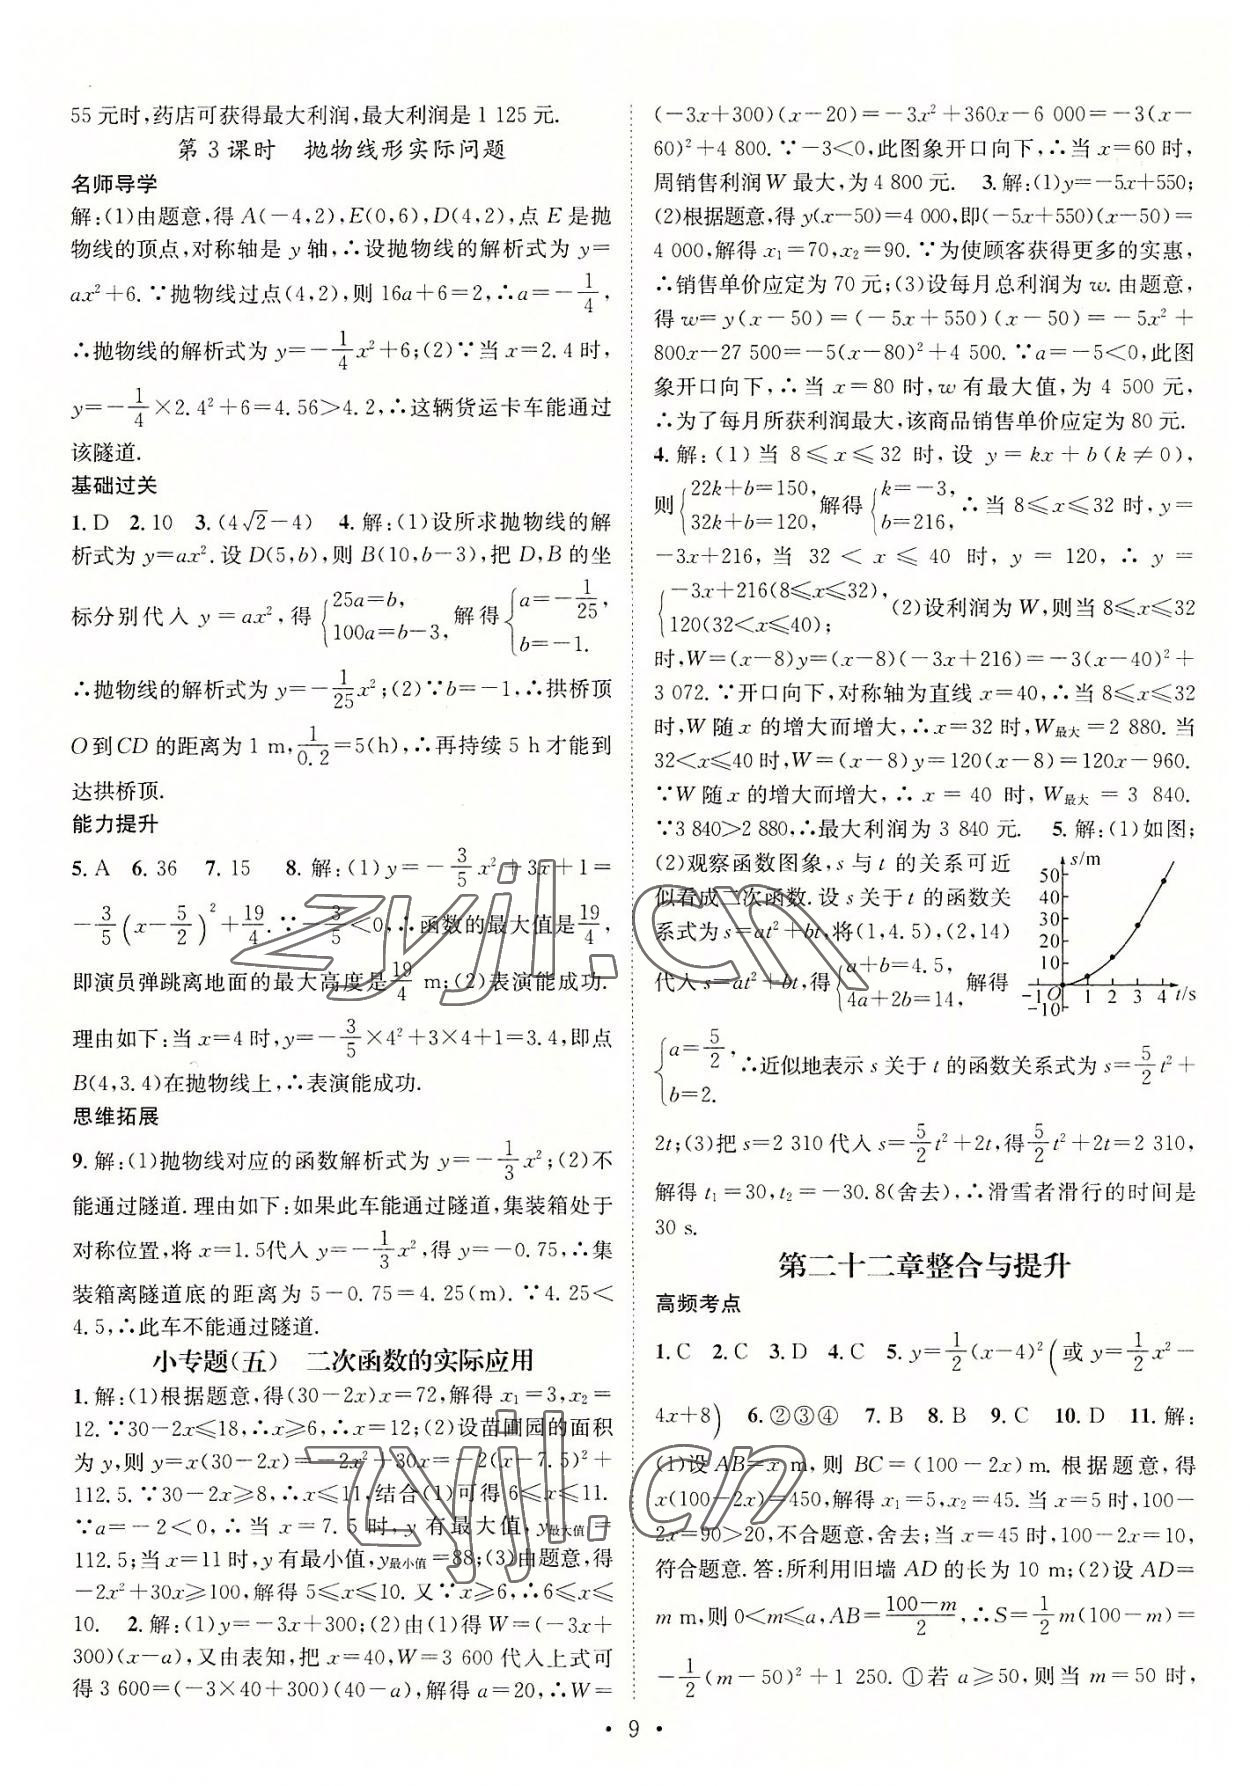 55 元时,药店可获得最大利润,最大利润是 1 125 元.
第 3 课时 抛物线形实际问题
名师导学
解:(1)由题意,得 A(-4,2),E(0,6),D(4,2),点 E 是抛
物线的顶点,对称轴是 y 轴,∴设抛物线的解析式为 y=
ax²+6.∵抛物线过点(4,2),则 16a+6=2,∴a=-1/4,
∴抛物线的解析式为 y=-1/4x²+6;(2)∵当 x=2.4 时,
y=-1/4×2.4²+6=4.56>4.2,∴这辆货运卡车能通过
该隧道.
基础过关
1.D 2.10 3.(4√2-4) 4.解:(1)设所求抛物线的解
析式为 y=ax².设 D(5,b),则 B(10,b-3),把 D,B 的坐
标分别代入 y=ax²,得{25a=b, 100a=b-3, 解得{a=-1/25, b=-1.
∴抛物线的解析式为 y=-1/25x²;(2)∵b=-1,∴拱桥顶
O 到 CD 的距离为 1 m,1/0.2=5(h),∴再持续 5 h 才能到
达拱桥顶.
能力提升
5.A 6.36 7.15 8.解:(1)y=-3/5x²+3x+1=
-3/5(x-5/2)²+19/4.∵-3/5<0,∴函数的最大值是19/4,
即演员弹跳离地面的最大高度是19/4 m;(2)表演能成功.
理由如下:当 x=4 时,y=-3/5×4²+3×4+1=3.4,即点
B(4,3.4)在抛物线上,∴表演能成功.
思维拓展
9.解:(1)抛物线对应的函数解析式为 y=-1/3x²;(2)不
能通过隧道.理由如下:如果此车能通过隧道,集装箱处于
对称位置,将 x=1.5代入 y=-1/3x²,得 y=-0.75,∴集
装箱离隧道底的距离为 5-0.75=4.25(m).∵4.25<
4.5,∴此车不能通过隧道.
小专题(五) 二次函数的实际应用
1.解:(1)根据题意,得(30-2x)x=72,解得 x₁=3,x₂=
12.∵30-2x≤18,∴x≥6,∴x=12;(2)设苗圃园的面积
为 y,则 y=x(30-2x)=-2x²+30x=-2(x-7.5)²+
112.5.∵30-2x≥8,∴x≤11,结合(1)可得 6≤x≤11.
∵a=-2<0,∴当 x=7.5 时,y 有最大值,y最大值=
112.5;当 x=11 时,y 有最小值,y最小值=88;(3)由题意,得
-2x²+30x≥100,解得 5≤x≤10.又∵x≥6,∴6≤x≤
10. 2.解:(1)y=-3x+300;(2)由(1)得 W=(-3x+
300)(x-a),又由表知,把 x=40,W=3 600 代入上式可
得 3 600=(-3×40+300)(40-a),解得 a=20,∴W=
(-3x+300)(x-20)=-3x²+360x-6 000=-3(x-
60)²+4 800.∵-3<0,此图象开口向下,∴当 x=60 时,
周销售利润 W 最大,为 4 800 元. 3.解:(1)y=-5x+550;
(2)根据题意,得 y(x-50)=4 000,即(-5x+550)(x-50)=
4 000,解得 x₁=70,x₂=90.∵为使顾客获得更多的实惠,
∴销售单价应定为 70 元;(3)设每月总利润为 w.由题意,
得 w=y(x-50)=(-5x+550)(x-50)=-5x²+
800x-27 500=-5(x-80)²+4 500.∵a=-5<0,此图
象开口向下,∴当 x=80 时,w 有最大值,为 4 500 元,
∴为了每月所获利润最大,该商品销售单价应定为 80 元.
4.解:(1)当 8≤x≤32 时,设 y=kx+b(k≠0),
则{22k+b=150, 32k+b=120, 解得{k=-3, b=216, ∴当 8≤x≤32 时,y=
-3x+216,当 32<x≤40 时,y=120,∴y=
{-3x+216(8≤x≤32), 120(32<x≤40); (2)设利润为 W,则当 8≤x≤32
时,W=(x-8)y=(x-8)(-3x+216)=-3(x-40)²+
3 072.∵开口向下,对称轴为直线 x=40,∴当 8≤x≤32
时,W 随 x 的增大而增大,∴x=32 时,W最大=2 880.当
32<x≤40 时,W=(x-8)y=120(x-8)=120x-960.
∵W 随 x 的增大而增大,∴x=40 时,W最大=3 840.
∵3 840>2 880,∴最大利润为 3 840 元. 5.解:(1)如图;
(2)观察函数图象,s 与 t 的关系可近
似看成二次函数.设 s 关于 t 的函数关
系式为 s=at²+bt,将(1,4.5),(2,14)
代入 s=at²+bt,得{a+b=4.5, 4a+2b=14, 解得
s/m
50
40
30
20
10
-1 O 1 2 3 4 t/s
-10
{a=5/2, b=2. ∴近似地表示 s 关于 t 的函数关系式为 s=5/2t²+
2t;(3)把 s=2 310 代入 s=5/2t²+2t,得5/2t²+2t=2 310,
解得 t₁=30,t₂=-30.8(舍去),∴滑雪者滑行的时间是
30 s.
第二十二章整合与提升
高频考点
1.C 2.C 3.D 4.C 5.y=1/2(x-4)²(或 y=1/2x²-
4x+8) 6.②③④ 7.B 8.B 9.C 10.D 11.解:
(1)设 AB=x m,则 BC=(100-2x)m.根据题意,得
x(100-2x)=450,解得 x₁=5,x₂=45.当 x=5 时,100-
2x=90>20,不合题意,舍去;当 x=45 时,100-2x=10,
符合题意.答:所利用旧墙 AD 的长为 10 m;(2)设 AD=
m m,则 0<m≤a,AB=100-m/2,∴S=1/2m(100-m)=
-1/2(m-50)²+1 250.①若 a≥50,则当 m=50 时,
• 9 •
zyjl.cn
zyjl.cn